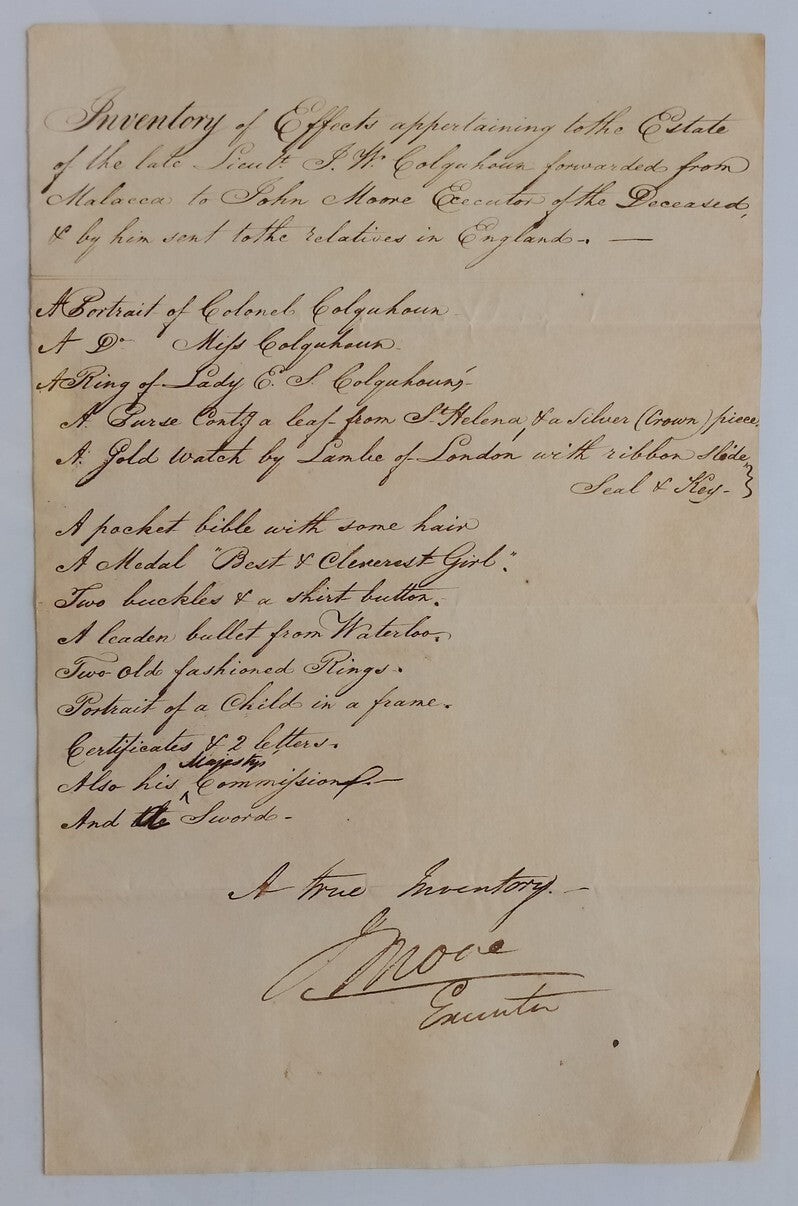 Inventory of Effects appertaining to the Estate
of the late Lieut.t J. W. Colquhoun forwarded from
Malacca to John Moore Executor of the Deceased,
& by him sent to the relatives in England. —
A Portrait of Colonel Colquhoun
A Do Miss Colquhoun
A Ring of Lady E. S. Colquhoun's
A Purse Contg a leaf from St Helena, & a Silver (Crown) piece.
A Gold Watch by Lambe of London with ribbon slide
Seal & Key - }
A pocket bible with some hair
A Medal "Best & Cleverest Girl".
Two buckles & a shirt button.
A leaden bullet from Waterloo.
Two old fashioned Rings.
Portrait of a Child in a frame.
Certificates & 2 letters.
Also his ^ Majestys Commission. —
And Sword -
A true Inventory. -
J Moore
Executor